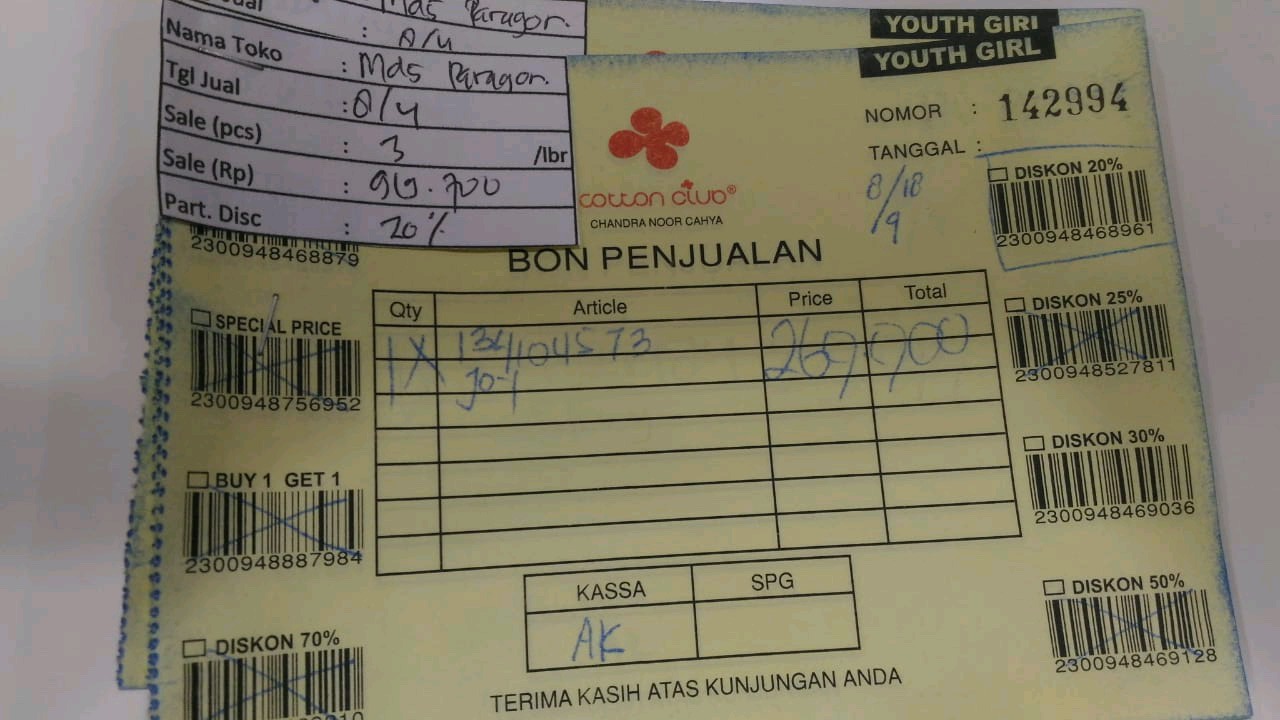 Mds Paragon.
: 8/4
Nama Toko : Mds Paragon.
Tgl Jual : 8/4
Sale (pcs) : 3 /lbr
Sale (Rp) :
Part. Disc : 20%
YOUTH GIRL
YOUTH GIRL
NOMOR : 142994
TANGGAL :
8/18
/9
cotton club®
CHANDRA NOOR CAHYA
BON PENJUALAN
2300948468879
DISKON 20%
2300948468961
SPECIAL PRICE
2300948756952
DISKON 25%
2300948527811
BUY 1 GET 1
2300948887984
DISKON 30%
2300948469036
DISKON 70%
DISKON 50%
2300948469128
Qty Article Price Total
1X 104573 269,900
KASSA SPG
AK
TERIMA KASIH ATAS KUNJUNGAN ANDA